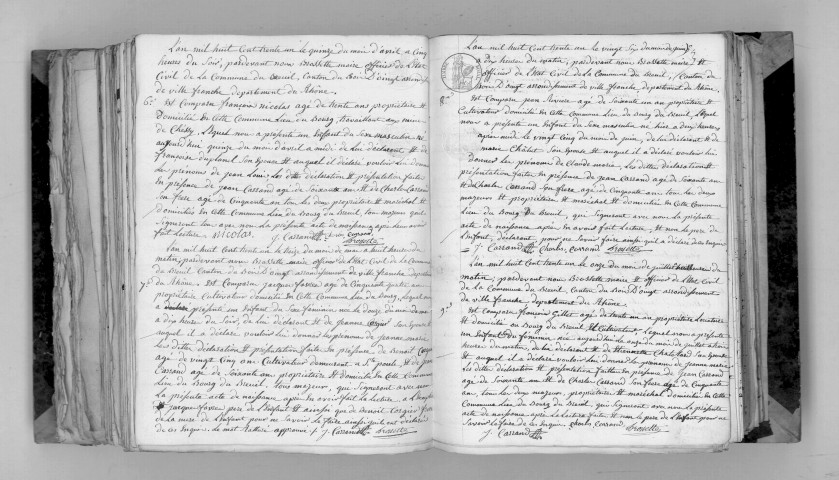 L'an mil huit Cent trente un le quinze du mois d'avril a Cinq
heures du Soir, pardevant nous Brossette maire officier de l'Etat
Civil de la Commune du Breuil, Canton du Bois D'oingt arrond
de ville franche departement du Rhône.
6.° Est Comparu françois nicolas agé de trente ans propriétaire &
Domicilié En Cette Commune Lieu du Bourg, travaillant aux mines
de Chessy. Lequel nous a présenté un Enfant du Sexe masculin né
aujourd'hui quinze du mois d'avril a midi de Lui déclarant & de
françoise duplanel Son Epouse & auquel il a déclaré vouloir Lui donner
les prenoms de jean Louis. Les dittes déclaration & présentation faite
En présence de jean Carrand agé de Soixante ans & de Charles Carrand
Son frère agé de Cinquante ans tous les deux propriétaire & maréchal &
domiciliés En Cette Commune Lieu du Bourg du Breuil, tous majeurs qui
signeront avec nous la présente acte de naissance après leur avoir
fait Lecture. nicolas. J. Carrand charles carrand Brossette
L'an mil huit Cent trente un le Seize du mois de mai a huit heures du
matin, pardevant nous Brossette maire officier de l'Etat Civil de la Commune
du Breuil Canton du Bois D'oingt arrondissement de ville franche departem
du Rhône. Est Comparu jacques farges agé de Cinquante quatre ans
7.° propriétaire Cultivateur domicilié En Cette Commune Lieu du Bourg, lequel nous
a présenté un Enfant du Sexe feminin né le douze du mois de mai
a dix heures du Soir, de Lui déclarant & de jeanne Corgier Son Epouse &
auquel il a déclaré vouloir Lui donner les prenoms de jeanne marie
Les dittes déclaration & présentation faite En présence de Benoit Corgier
agé de vingt Cinq ans Cultivateur demeurant a St. paul & de jean
Carrand agé de Soixante ans propriétaire & domicilié En Cette Commune
Lieu du Bourg du Breuil, tous majeurs, qui Signeront avec nous
la présente acte de naissance après En avoir fait Lecture
jacques farges père de l'Enfant & ainsi que de Benoit Corgier frère
de la mère de l'Enfant pour ne Savoir le faire ainsi qu'ils ont déclaré
de ces Enquis. Le mot Rature approuvé J. Carrand Brossette
L'an mil huit Cent trente un le vingt Six du mois de juin
a dix heures du matin, pardevant nous Brossette maire &
officier de l'Etat Civil de la Commune du Breuil, Canton du
Bois D'oingt arrondissement de ville franche, departement du Rhône.
8.° Est Comparu jean agé de Soixante un ans propriétaire &
Cultivateur domicilié En Cette Commune Lieu du Bourg du Breuil. Lequel
nous a présenté un Enfant du Sexe masculin né hier a deux heures
après midi le vingt Cinq du mois de juin, de Lui déclarant & de
marie Chatut Son Epouse & auquel il a déclaré vouloir Lui
donner les prénoms de Claude marie. Les dittes déclaration &
présentation faite En présence de jean Carrand agé de Soixante ans
& de Charles Carrand Son frère agé de Cinquante ans tous les deux
majeurs propriétaire & maréchal & domiciliés En Cette Commune
Lieu du Bourg du Breuil, qui Signeront avec nous la présente
acte de naissance après En avoir fait Lecture, & non le père de
l'Enfant, déclarant pour ne Savoir faire ainsi qu'il a déclaré de ces Enquis
J. Carrand charles carrand Brossette
L'an mil huit Cent trente un le onze du mois de juillet heures du
matin, pardevant nous Brossette maire & officier de l'Etat Civil
de la Commune du Breuil, Canton du Bois D'oingt arrondissement
de ville franche departement du Rhône.
9.° Est Comparu françois Gillet agé de trente ans propriétaire
& domicilié au Bourg du Breuil & Cultivateur. Lequel nous a présenté
un Enfant du feminin né aujourd'hui le onze du mois de juillet a
heures du matin, de Lui déclarant & de Son Epouse
& auquel il a déclaré vouloir Lui donner les prenoms de jeanne marie
Les dittes déclaration & présentation faite En présence de jean Carrand
agé de Soixante ans & de Charles Carrand Son frère agé de Cinquante
ans, tous les deux majeurs, propriétaire & maréchal domiciliés En Cette
Commune Lieu du Bourg du Breuil, qui Signeront avec nous la présente
acte de naissance après la Lecture faite & non le père de l'Enfant pour ne
Savoir le faire de ce Enquis. charles carrand Brossette
J. Carrand